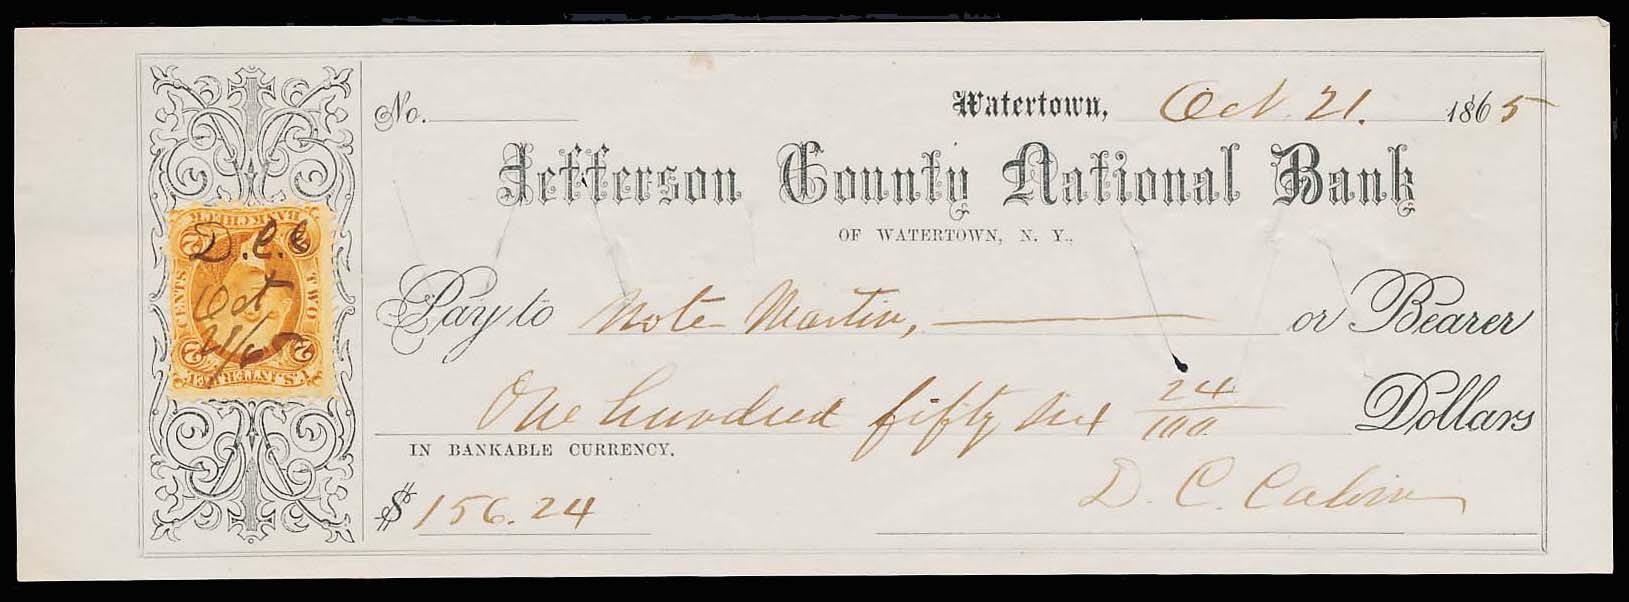 No. Watertown, Oct. 21. 1865
Jefferson County National Bank
OF WATERTOWN, N. Y.,
Pay to Note Martin, or Bearer
One hundred fifty six 24/100 Dollars
IN BANKABLE CURRENCY.
$ 156.24
D. C. Calvin
BANK CHECK
2 2
CENTS TWO
2 2
U.S. INTER. REV.
D.C.C
Oct
21/65